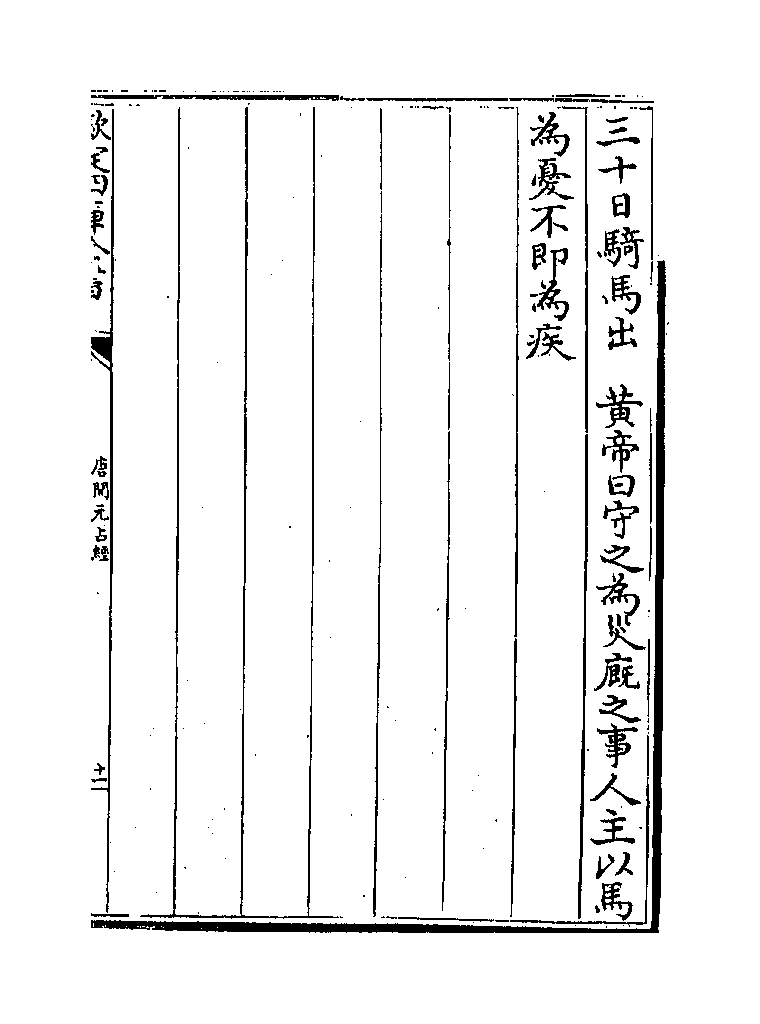 三十日騎馬出　黄帝曰守之為災廐之事人主以馬
為憂不即為疾
欽定四庫全書
唐開元占經
十二